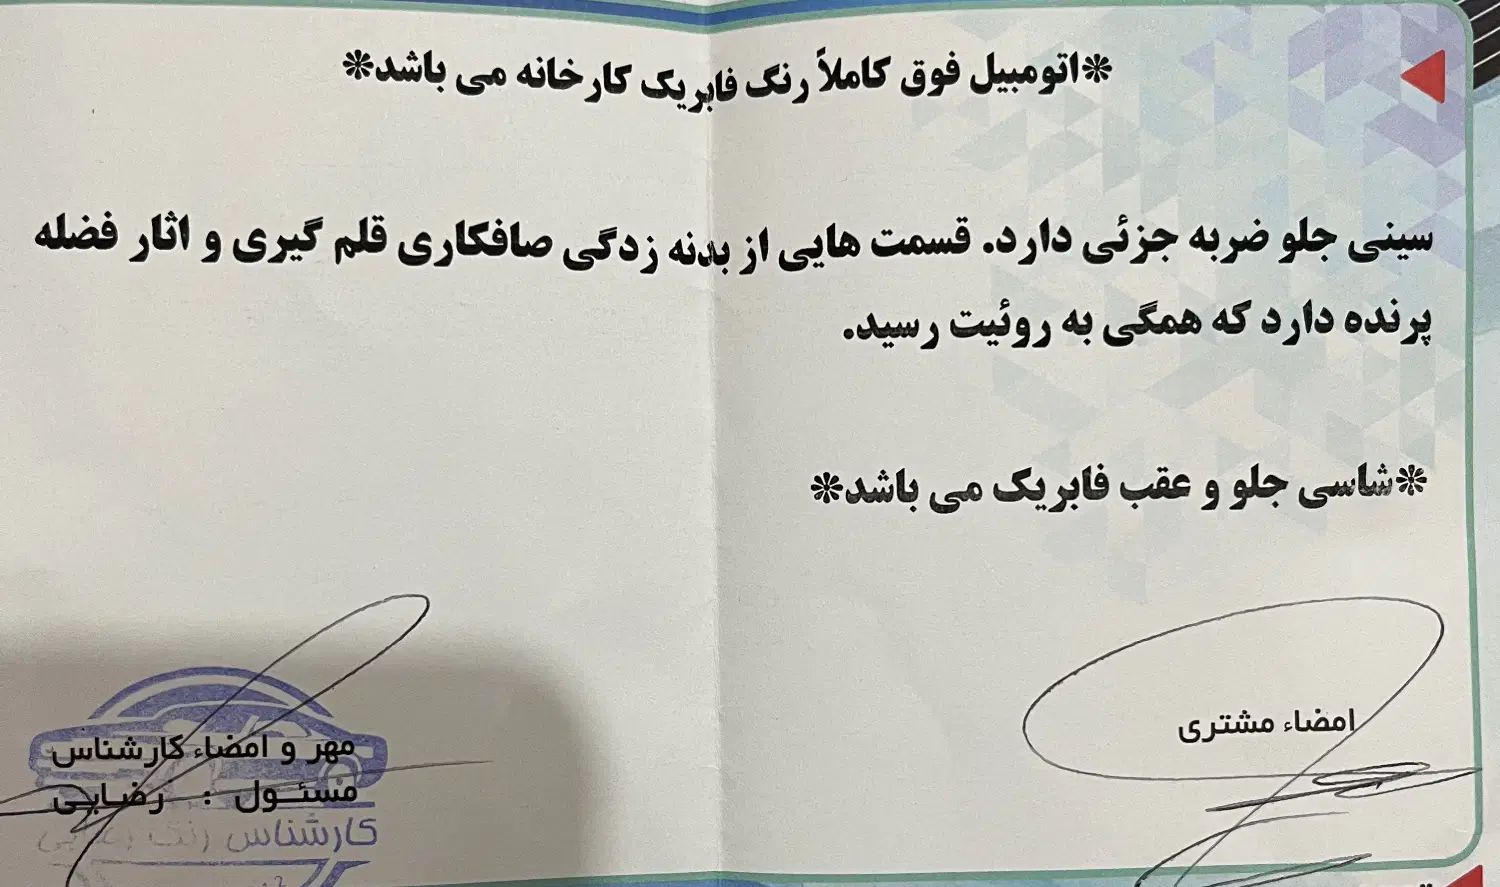 ❊اتومبیل فوق کاملاً رنگ فابریک کارخانه می باشد❊
سینی جلو ضربه جزئی دارد. قسمت هایی از بدنه زدگی صافکاری قلم گیری و اثار فضله
پرنده دارد که همگی به روئیت رسید.
❊شاسی جلو و عقب فابریک می باشد❊
امضاء مشتری
مهر و امضاء کارشناس
مسئـول : رضایـی
کارشناس رنگ